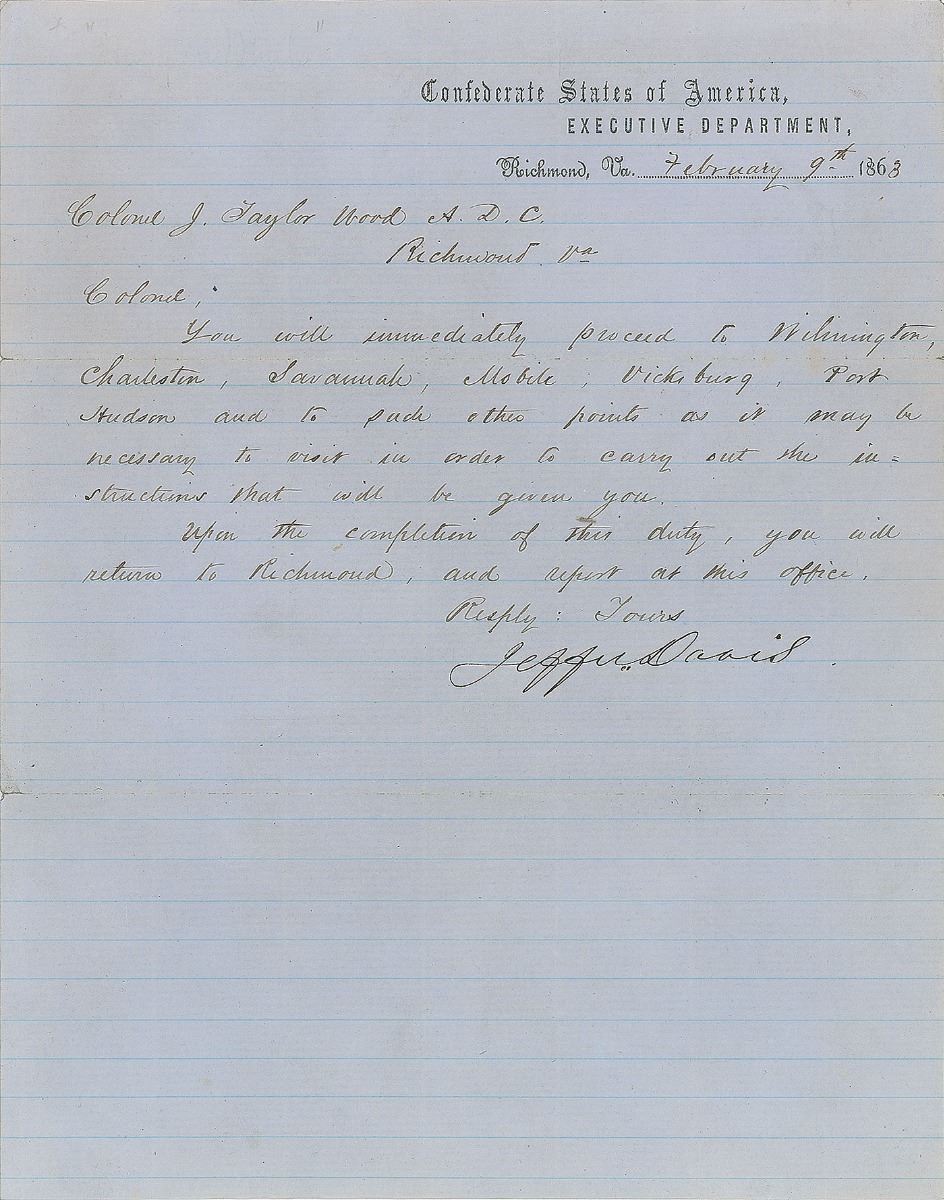 Confederate States of America,
EXECUTIVE DEPARTMENT,
Richmond, Va. February 9th 1863
Colonel J. Taylor Wood A. D. C.
Richmond Va
Colonel,
You will immediately proceed to Wilmington,
Charleston, Savannah, Mobile, Vicksburg, Port
Hudson and to such other points as it may be
necessary to visit in order to carry out the in=
structions that will be given you.
Upon the completion of this duty, you will
return to Richmond, and report at this office.
Resply: Yours
Jeffn. Davis